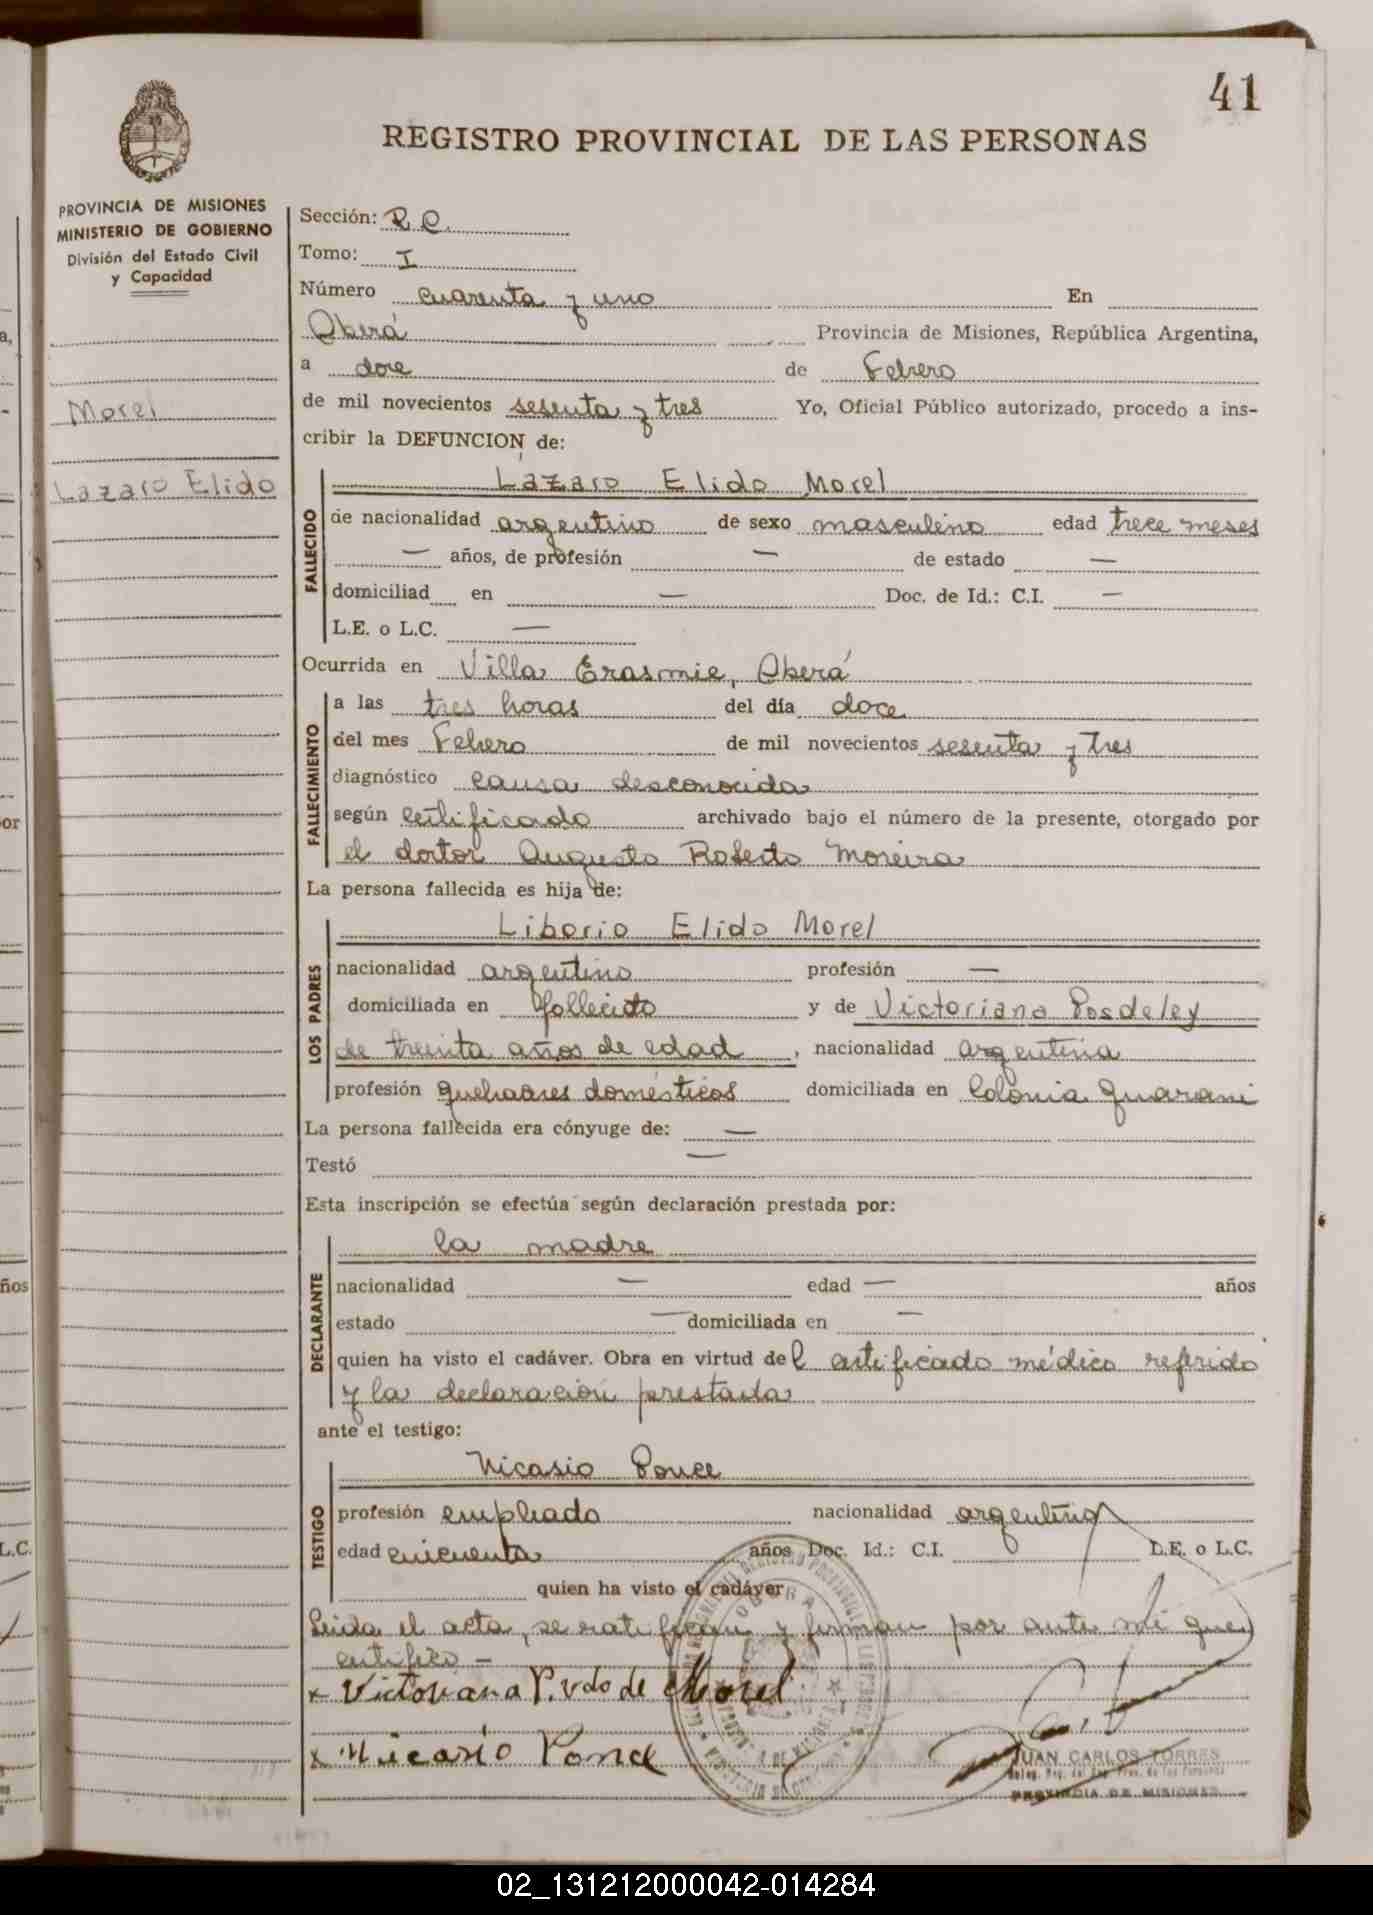 41
REGISTRO PROVINCIAL DE LAS PERSONAS
PROVINCIA DE MISIONES
MINISTERIO DE GOBIERNO
División del Estado Civil
y Capacidad
Morel
Lazaro Elido
Sección: R.C.
Tomo: I
Número cuarenta y uno En
Oberá Provincia de Misiones, República Argentina,
a doce de Febrero
de mil novecientos sesenta y tres Yo, Oficial Público autorizado, procedo a ins-
cribir la DEFUNCION de:
FALLECIDO
Lázaro Elido Morel
de nacionalidad argentino de sexo masculino edad trece meses
— años, de profesión — de estado —
domiciliad en — Doc. de Id.: C.I. —
L.E. o L.C. —
Ocurrida en Villa Erasmie, Oberá
FALLECIMIENTO
a las tres horas del día doce
del mes Febrero de mil novecientos sesenta y tres
diagnóstico causa desconocida
según certificado archivado bajo el número de la presente, otorgado por
el doctor Augusto Roberto Moreira
La persona fallecida es hija de:
LOS PADRES
Liborio Elido Morel
nacionalidad argentino profesión —
domiciliada en fallecido y de Victoriana Posdeley
de treinta años de edad, nacionalidad argentina
profesión quehaceres domésticos domiciliada en Colonia Guarani
La persona fallecida era cónyuge de: —
Testó —
Esta inscripción se efectúa según declaración prestada por:
DECLARANTE
la madre
nacionalidad — edad — años
estado — domiciliada en —
quien ha visto el cadáver. Obra en virtud del certificado médico referido
y la declaración prestada
ante el testigo:
TESTIGO
Nicasio Ponce
profesión empleado nacionalidad argentina
edad cincuenta años Doc. Id.: C.I. L.E. o L.C.
quien ha visto el cadáver
Leida el acta, se ratifican y firman por ante mi que
certifico —
x Victoriana P. vdo de Morel
x Nicasio Ponce
JUAN CARLOS TORRES
PROVINCIA DE MISIONES
02_131212000042-014284